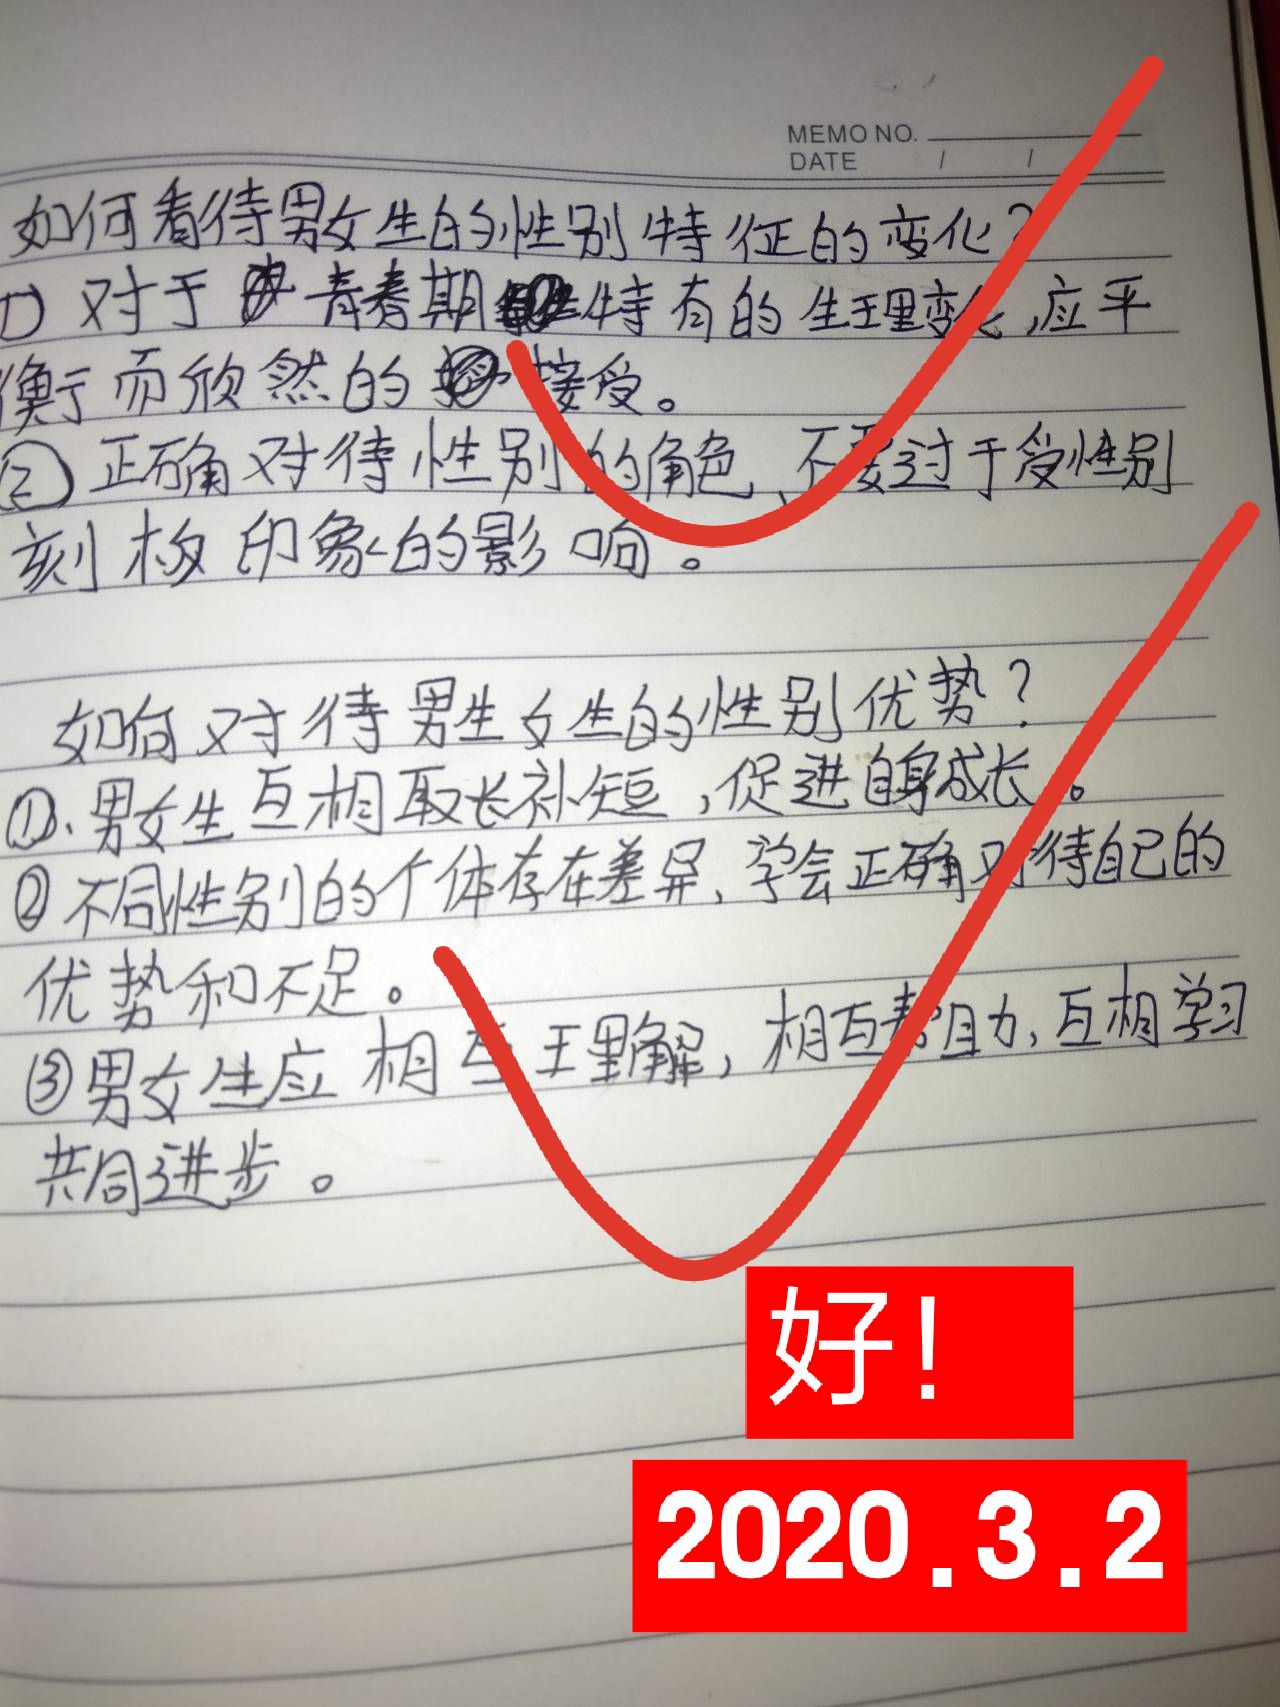 MEMO NO.
DATE / /
如何看待男女生的性别特征的变化?
① 对于青春期特有的生理变化,应平
衡而欣然的接受。
② 正确对待性别的角色,不要过于受性别
刻板印象的影响。
如何对待男生女生的性别优势?
①.男女生互相取长补短,促进自身成长。
② 不同性别的个体存在差异,学会正确对待自己的
优势和不足。
③男女生应相互理解,相互帮助,互相学习
共同进步。
好!
2020.3.2